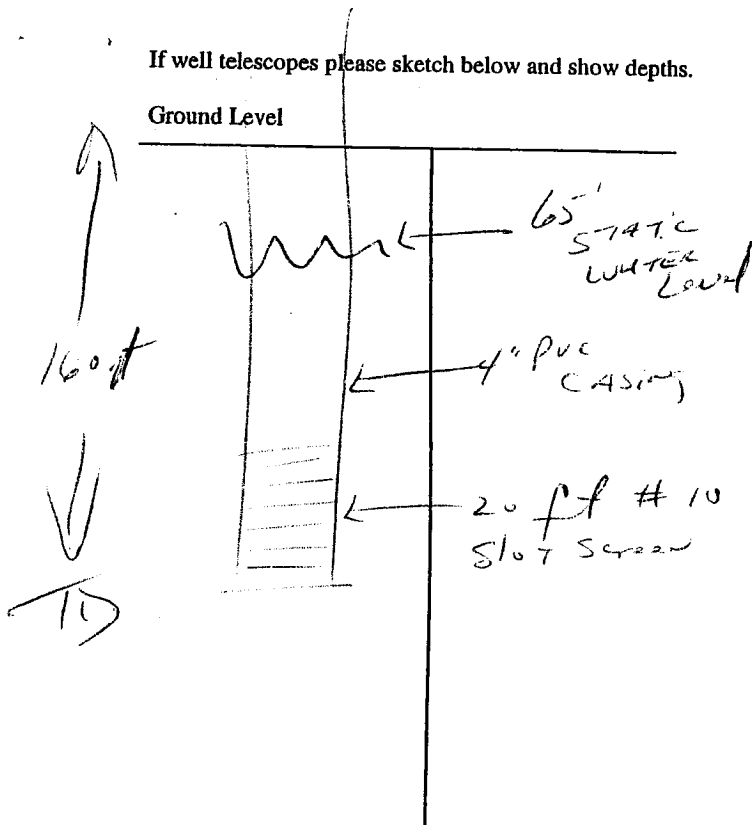 If well telescopes please sketch below and show depths.
Ground Level
65'
STATIC
WATER
Level
160 ft
4" PVC
CASING
20 ft # 10
Slot Screen
TD